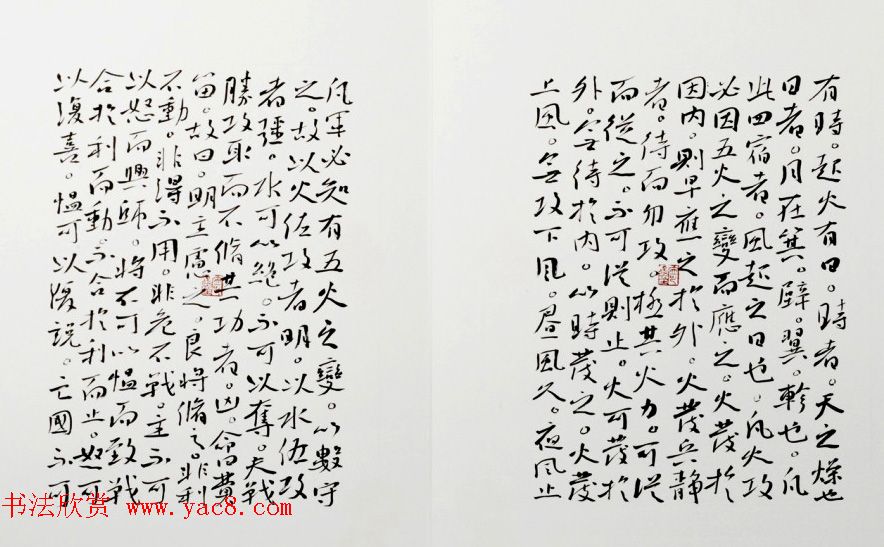 有時。起火有日。時者。天之燥也
日者。月在箕。壁。翼。軫也。凡
此四宿者。風起之日也。凡火攻
必因五火之變而應之。火發於
因内。則早應之於外。火發兵靜
者。待而勿攻。極其火力。可從
而從之。不可從則止。火可發於
外。無待於内。以時發之。火發
上風。無攻下風。晝風久。夜風止
凡軍必知有五火之變。以數守
之。故以火佐攻者明。以水佐攻
者強。水可以絕。不可以奪。夫戰
勝攻取而不脩其功者。凶。命曰費
留。故曰。明主慮之。良將脩之。非利
不動。非得不用。非危不戰。主不可
以怒而興師。將不可以慍而致戰
合於利而動。不合於利而止。怒可
以復喜。慍可以復說。亡國不可
书法欣赏 www.yac8.com